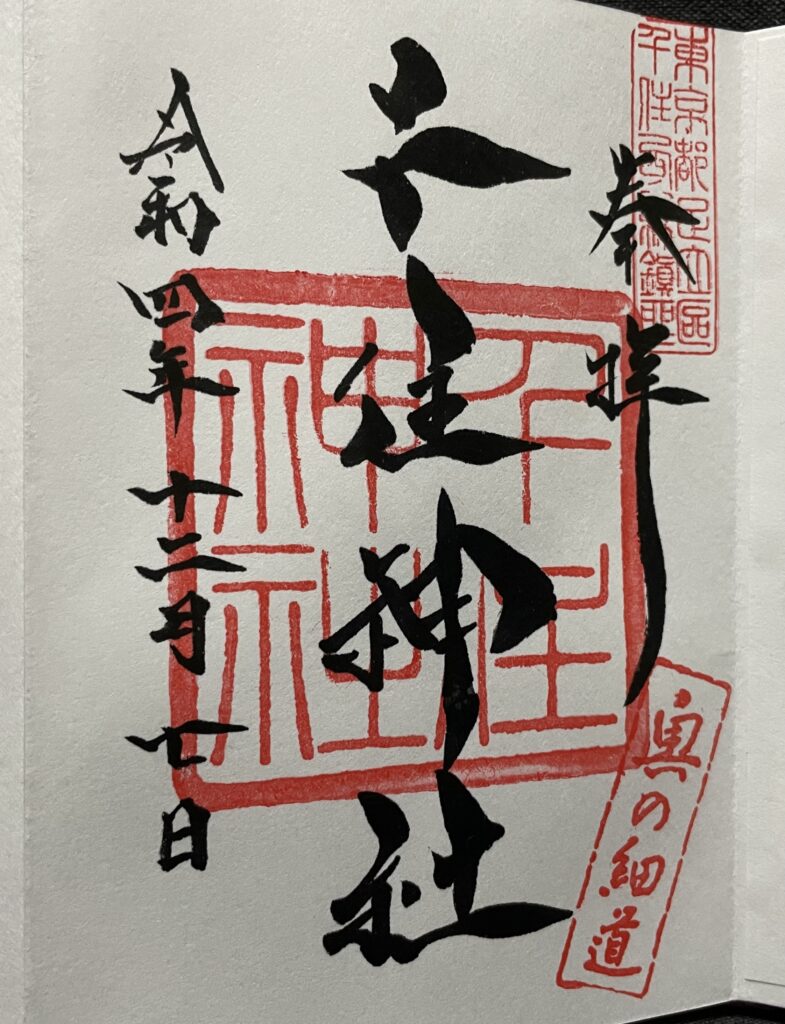 東京都足立區
千住
鎮
奉拝
千住神社
千住
神社
令和四年十二月七日
奥の細道